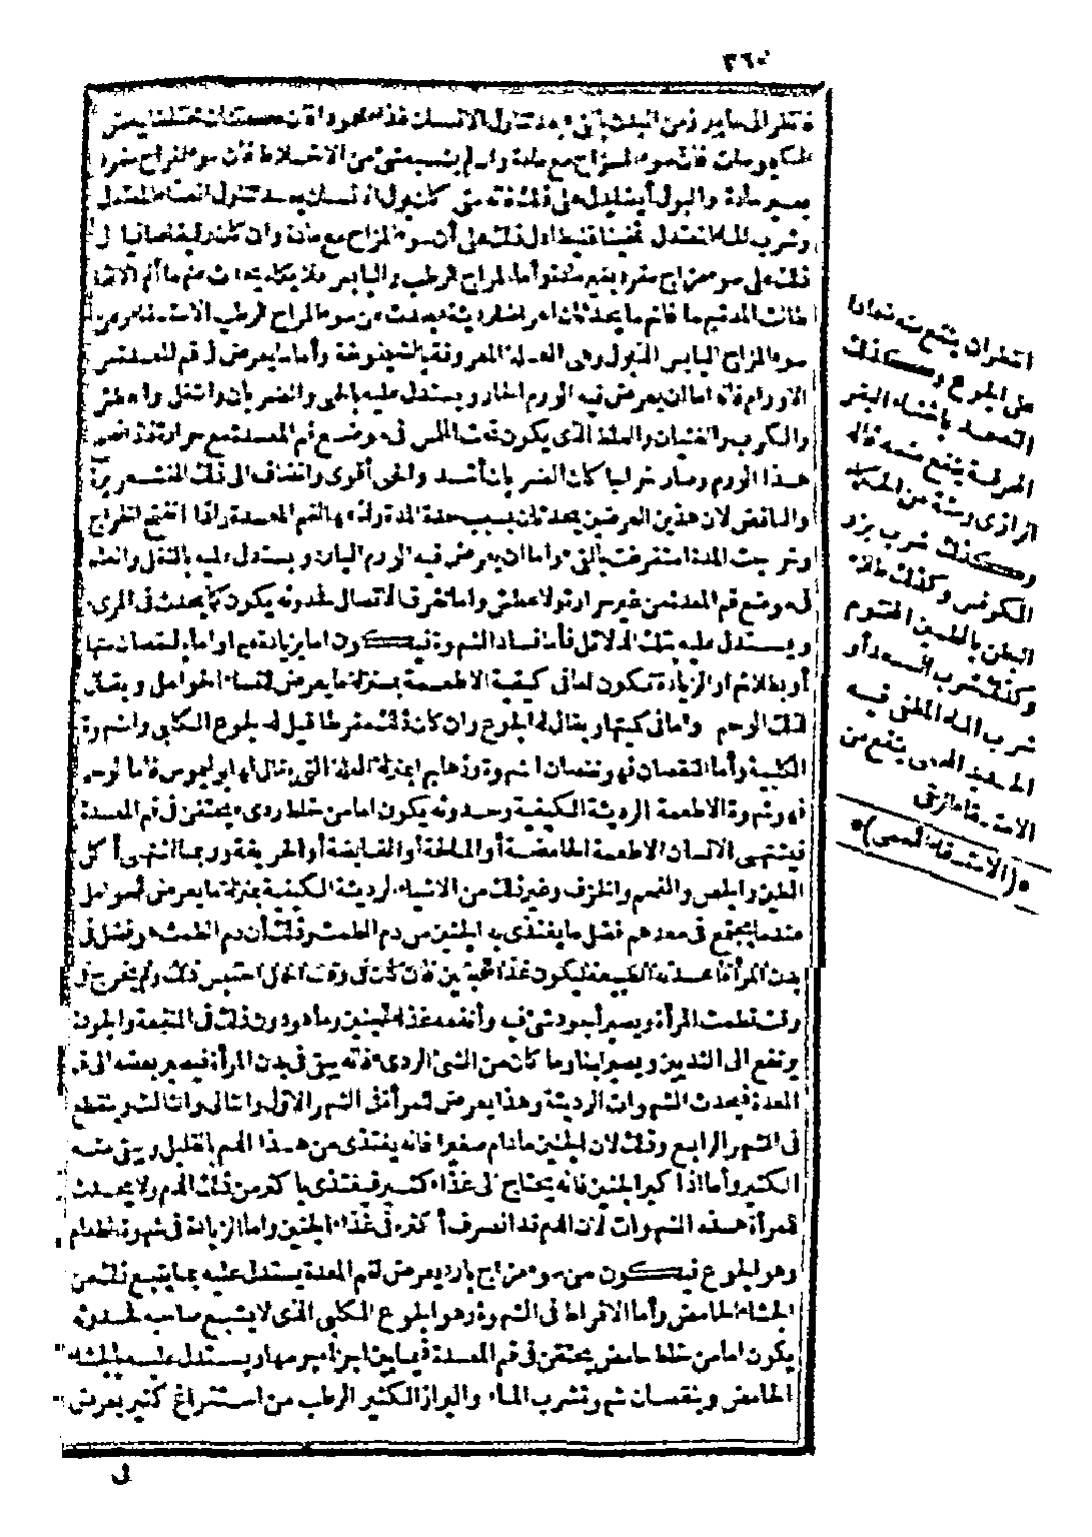 ٣٦٠
فتنظر الى ما يبرز من البدن بالقيء بعد تناول الانسان غذاء محمودا فان
فان سوء المزاج مع مادة وان لم يتبعه شيء من الاخلاط فان سوء المزاج مفرد
بغير مادة والبول أيضا يدل على ذلك فانه متى كان بول الانسان بعد تناول الغذاء المعتدل
وشرب الماء المعتدل ثخينا غليظا دل ذلك على أن سوء المزاج مع مادة وان كان رقيقا صافيا دل
ذلك على سوء مزاج مفرد بغير مادة وأما المزاج الرطب واليابس فلا يكاد يحدث عنهما ألم الا اذا
طالت المدة بهما فانهما يحدثان امراضا رديئة فيحدث عن سوء المزاج الرطب الاستسقاء وعن
سوء المزاج اليابس الذبول وهى العلة المعروفة بالشيخوخة وأما ما يعرض فى فم المعدة من
الاورام فانه اما ان يعرض فيه الورم الحار ويستدل عليه بالحمى والضربان واشتعال والعطش
والكرب والغثيان والغلظ الذى يكون تحت اللمس فى موضع فم المعدة مع حرارة فاذا نضج
هذا الورم وصار خراجا كان الضربان أشد والحمى أقوى وانضاف الى ذلك القشعريرة
والنافض لان هذين العرضين يحدثان بسبب حدة المدة ولذعها لفم المعدة واذا انفتح الخراج
وخرجت المدة استفرغت بالقيء واما ان يعرض فيه الورم البارد ويستدل عليه بالثقل والغلظ
فى موضع فم المعدة من غير حرارة ولا عطش واما تفرق الاتصال فحدوثه يكون كما يحدث فى المرىء
ويستدل عليه بتلك الدلائل فأما فساد الشهوة فيكون اما بزيادة فيها واما بنقصان منها
أو بطلانها والزيادة تكون اما فى كيفية الاطعمة بمنزلة ما يعرض للنساء الحوامل ويقال
لذلك الوحم واما فى كميتها ويقال له الجوع وان كان ذلك مفرطا قيل له الجوع الكلبى والشهوة
الكلبية وأما النقصان فهو نقصان الشهوة وذهابها بمنزلة العلة التى يقال لها بوليموس فاما الوحم
فهو شهوة الاطعمة الرديئة الكيفية وحدوثه يكون اما من خلط ردىء يحتقن فى فم المعدة
فيشتهى الانسان الاطعمة الحامضة أو المالحة أو القابضة أو الحريفة وربما اشتهى أكل
الطين والجص والفحم والخزف وغير ذلك من الاشياء الرديئة الكيفية بمنزلة ما يعرض للحوامل
عندما يجتمع فى معدهم فضل ما يغتذى به الجنين من دم الطمث وذلك أن دم الطمث هو فضل فى
بدن المرأة أعدته الطبيعة ليكون غذاء للجنين فان كان فى وقت الحمل احتبس ذلك ولم يخرج فى
وقت طمث المرأة ويصير أجود شيء فيه وأنفعه غذاء للجنين وما هو دون ذلك فى المنفعة والجودة
يرتفع الى الثديين ويصير لبنا وما كان من الشيء الردىء فانه يبقى فى بدن المرأة فيصير بعضه الى فم
المعدة فيحدث الشهوات الرديئة وهذا يعرض للمرأة فى الشهر الاول والثانى والثالث وينقطع
فى الشهر الرابع وذلك لان الجنين ما دام صغيرا فانه يغتذى من هذا الدم بالقليل ويبقى منه
الكثير وأما اذا كبر الجنين فانه يحتاج الى غذاء كثير فيغتذى بأكثر من ذلك الدم ولا يحدث
للمرأة هذه الشهوات لان الدم قد انصرف أكثره فى غذاء الجنين واما الزيادة فى شهوة الطعام
وهو الجوع فيكون من سوء مزاج بارد يعرض لفم المعدة يستدل عليه بما يتبع ذلك من
الجشاء الحامض وأما الافراط فى الشهوة وهو الجوع الكلبى الذى لا يشبع صاحبه فحدوثه
يكون اما من خلط حامض يحتقن فى فم المعدة فيما بين اجزاء جرمها ويستدل عليه بالجشاء
الحامض وبنقصان شهوة شرب الماء والبراز الكثير الرطب من استفراغ كثير يعرض
انتفران ينتفع منه نعمادا
على الجوع وكذلك
التضمد باخثاء البقر
المحرقة ينتفع منه قاله
الرازى وستة من الحكماء
وكذلك شرب بزر
الكرفس وكذلك طلاء
البطن بالطين المختوم
وكذلك شرب السعد أو
شرب الماء المطفى فيه
الحديد المحمى ينفع من
الاستسقاء الزقى
*(الاستسقاء اللحمى)*
فى